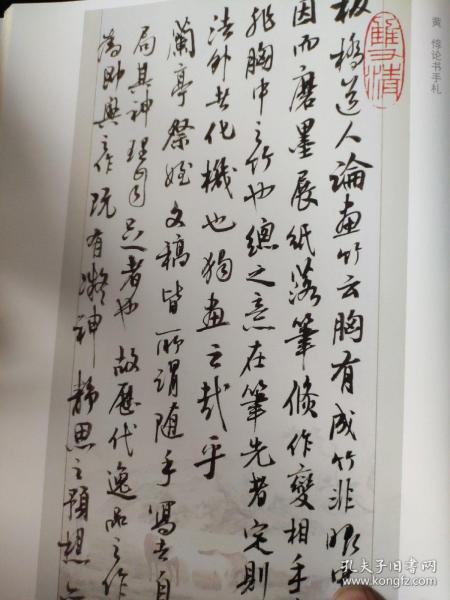 板橋道人論畫竹云胸有成竹非眼中
因而磨墨展紙落筆倏作變相手
非胸中之竹也總之意在筆先者定則
法外者化機也獨畫云哉乎
蘭亭祭姪文稿皆所謂随手寫去自
局其神理自足者也故歷代逸品之作
為即興之作既有凝神静思之預想
黄惇论书手札
孔夫子旧书网